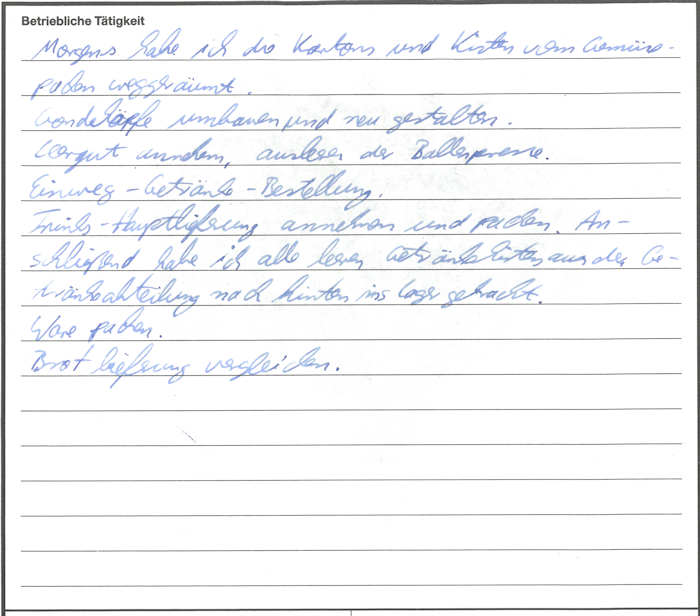 Betriebliche Tätigkeit
Morgens habe ich die Kartons und Kisten vom Gemüse-
packen weggeräumt.
Gondelköpfe umbauen und neu gestalten.
Leergut annehmen, ausleeren der Ballenpresse.
Einweg-Getränke-Bestellung.
Trinks-Hauptlieferung annehmen und packen. An-
schließend habe ich alle leeren Getränkekisten aus der Ge-
tränkeabteilung nach hinten ins Lager gebracht.
Ware packen.
Brotlieferung vergleichen.